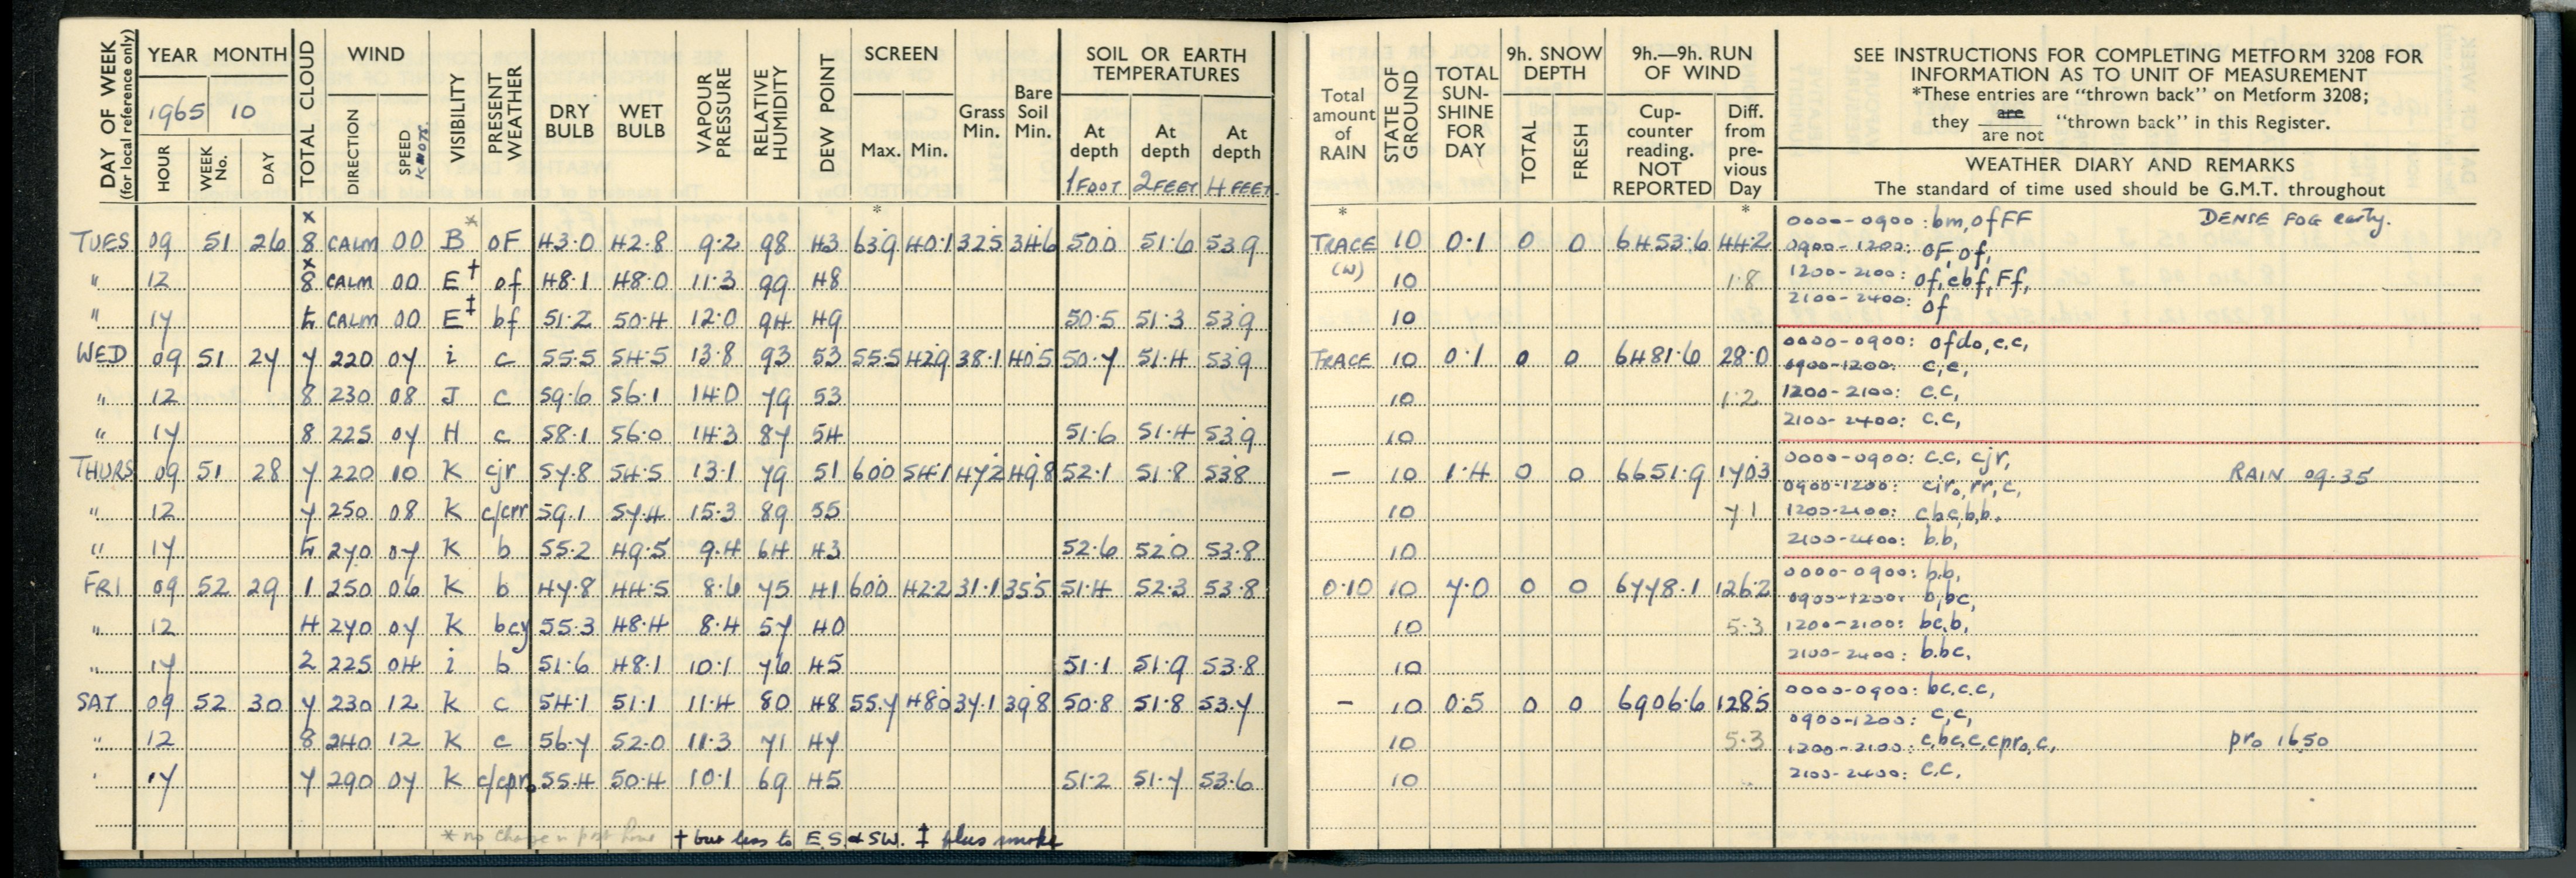 DAY OF WEEK (for local reference only) YEAR MONTH TOTAL CLOUD WIND VISIBILITY PRESENT WEATHER DRY BULB WET BULB VAPOUR PRESSURE RELATIVE HUMIDITY DEW POINT SCREEN Grass Min. Bare Soil Min. SOIL OR EARTH TEMPERATURES
1965 10
HOUR WEEK No. DAY DIRECTION SPEED KNOTS. Max. Min. At depth At depth At depth
1 FOOT 2 FEET 4 FEET
Total amount of RAIN STATE OF GROUND TOTAL SUN-SHINE FOR DAY 9h. SNOW DEPTH 9h.—9h. RUN OF WIND
TOTAL FRESH Cup-counter reading. NOT REPORTED Diff. from pre-vious Day
SEE INSTRUCTIONS FOR COMPLETING METFORM 3208 FOR
INFORMATION AS TO UNIT OF MEASUREMENT
*These entries are "thrown back" on Metform 3208;
they are / are not "thrown back" in this Register.
WEATHER DIARY AND REMARKS
The standard of time used should be G.M.T. throughout
* * *
TUES 09 51 26 x8 CALM 00 B* oF 43.0 42.8 9.2 98 43 63.9 40.1 32.5 34.6 50.0 51.6 53.9 TRACE 10 0.1 0 0 6453.6 44.2 0000-0900: bm, ofFF DENSE FOG early.
0900-1200: oF, of,
" 12 x8 CALM 00 E† of 48.1 48.0 11.3 99 48 (W) 10 1.8 1200-2100: of, cbf, Ff,
2100-2400: of
" 17 CALM 00 E‡ bf 51.2 50.4 12.0 94 49 50.5 51.3 53.9 10
WED 09 51 27 7 220 07 i c 55.5 54.5 13.8 93 53 55.5 42.9 38.1 40.5 50.7 51.4 53.9 TRACE 10 0.1 0 0 6481.6 28.0 0000-0900: ofdo, c.c,
0900-1200: c,c,
" 12 8 230 08 J c 59.6 56.1 14.0 79 53 10 1.2 1200-2100: c.c,
" 17 8 225 07 H c 58.1 56.0 14.3 87 54 51.6 51.4 53.9 10 2100-2400: c.c,
THURS 09 51 28 7 220 10 K cjr 57.8 54.5 13.1 79 51 60.0 54.1 47.2 49.8 52.1 51.8 53.8 – 10 1.4 0 0 6651.9 170.3 0000-0900: c.c, cjr, RAIN 09.35
0900-1200: ciro, rr, c,
" 12 7 250 08 K c/crr 59.1 57.4 15.3 89 55 10 7.1 1200-2100: cbc, b, b,
" 17 270 07 K b 55.2 49.5 9.4 64 43 52.6 52.0 53.8 10 2100-2400: b.b,
FRI 09 52 29 1 250 06 K b 47.8 44.5 8.6 75 41 60.0 42.2 31.1 35.5 51.4 52.3 53.8 0.10 10 7.0 0 0 6778.1 126.2 0000-0900: b.b,
0900-1200: b, bc,
" 12 4 270 07 K bcy 55.3 48.4 8.4 57 40 10 5.3 1200-2100: bc, b,
" 17 2 225 04 i b 51.6 48.1 10.1 76 45 51.1 51.9 53.8 10 2100-2400: b.bc,
SAT 09 52 30 7 230 12 K c 54.1 51.1 11.4 80 48 55.7 48.0 37.1 39.8 50.8 51.8 53.7 – 10 0.5 0 0 6906.6 128.5 0000-0900: bc.c.c,
0900-1200: c,c,
" 12 8 240 12 K c 56.7 52.0 11.3 71 47 10 5.3 1200-2100: c,bc,c,cpro,c, pro 1650
" 17 7 290 07 K c/cpro 55.4 50.4 10.1 69 45 51.2 51.7 53.6 10 2100-2400: c.c,
* no change in past hour † but less to E.S. & SW. ‡ plus smoke